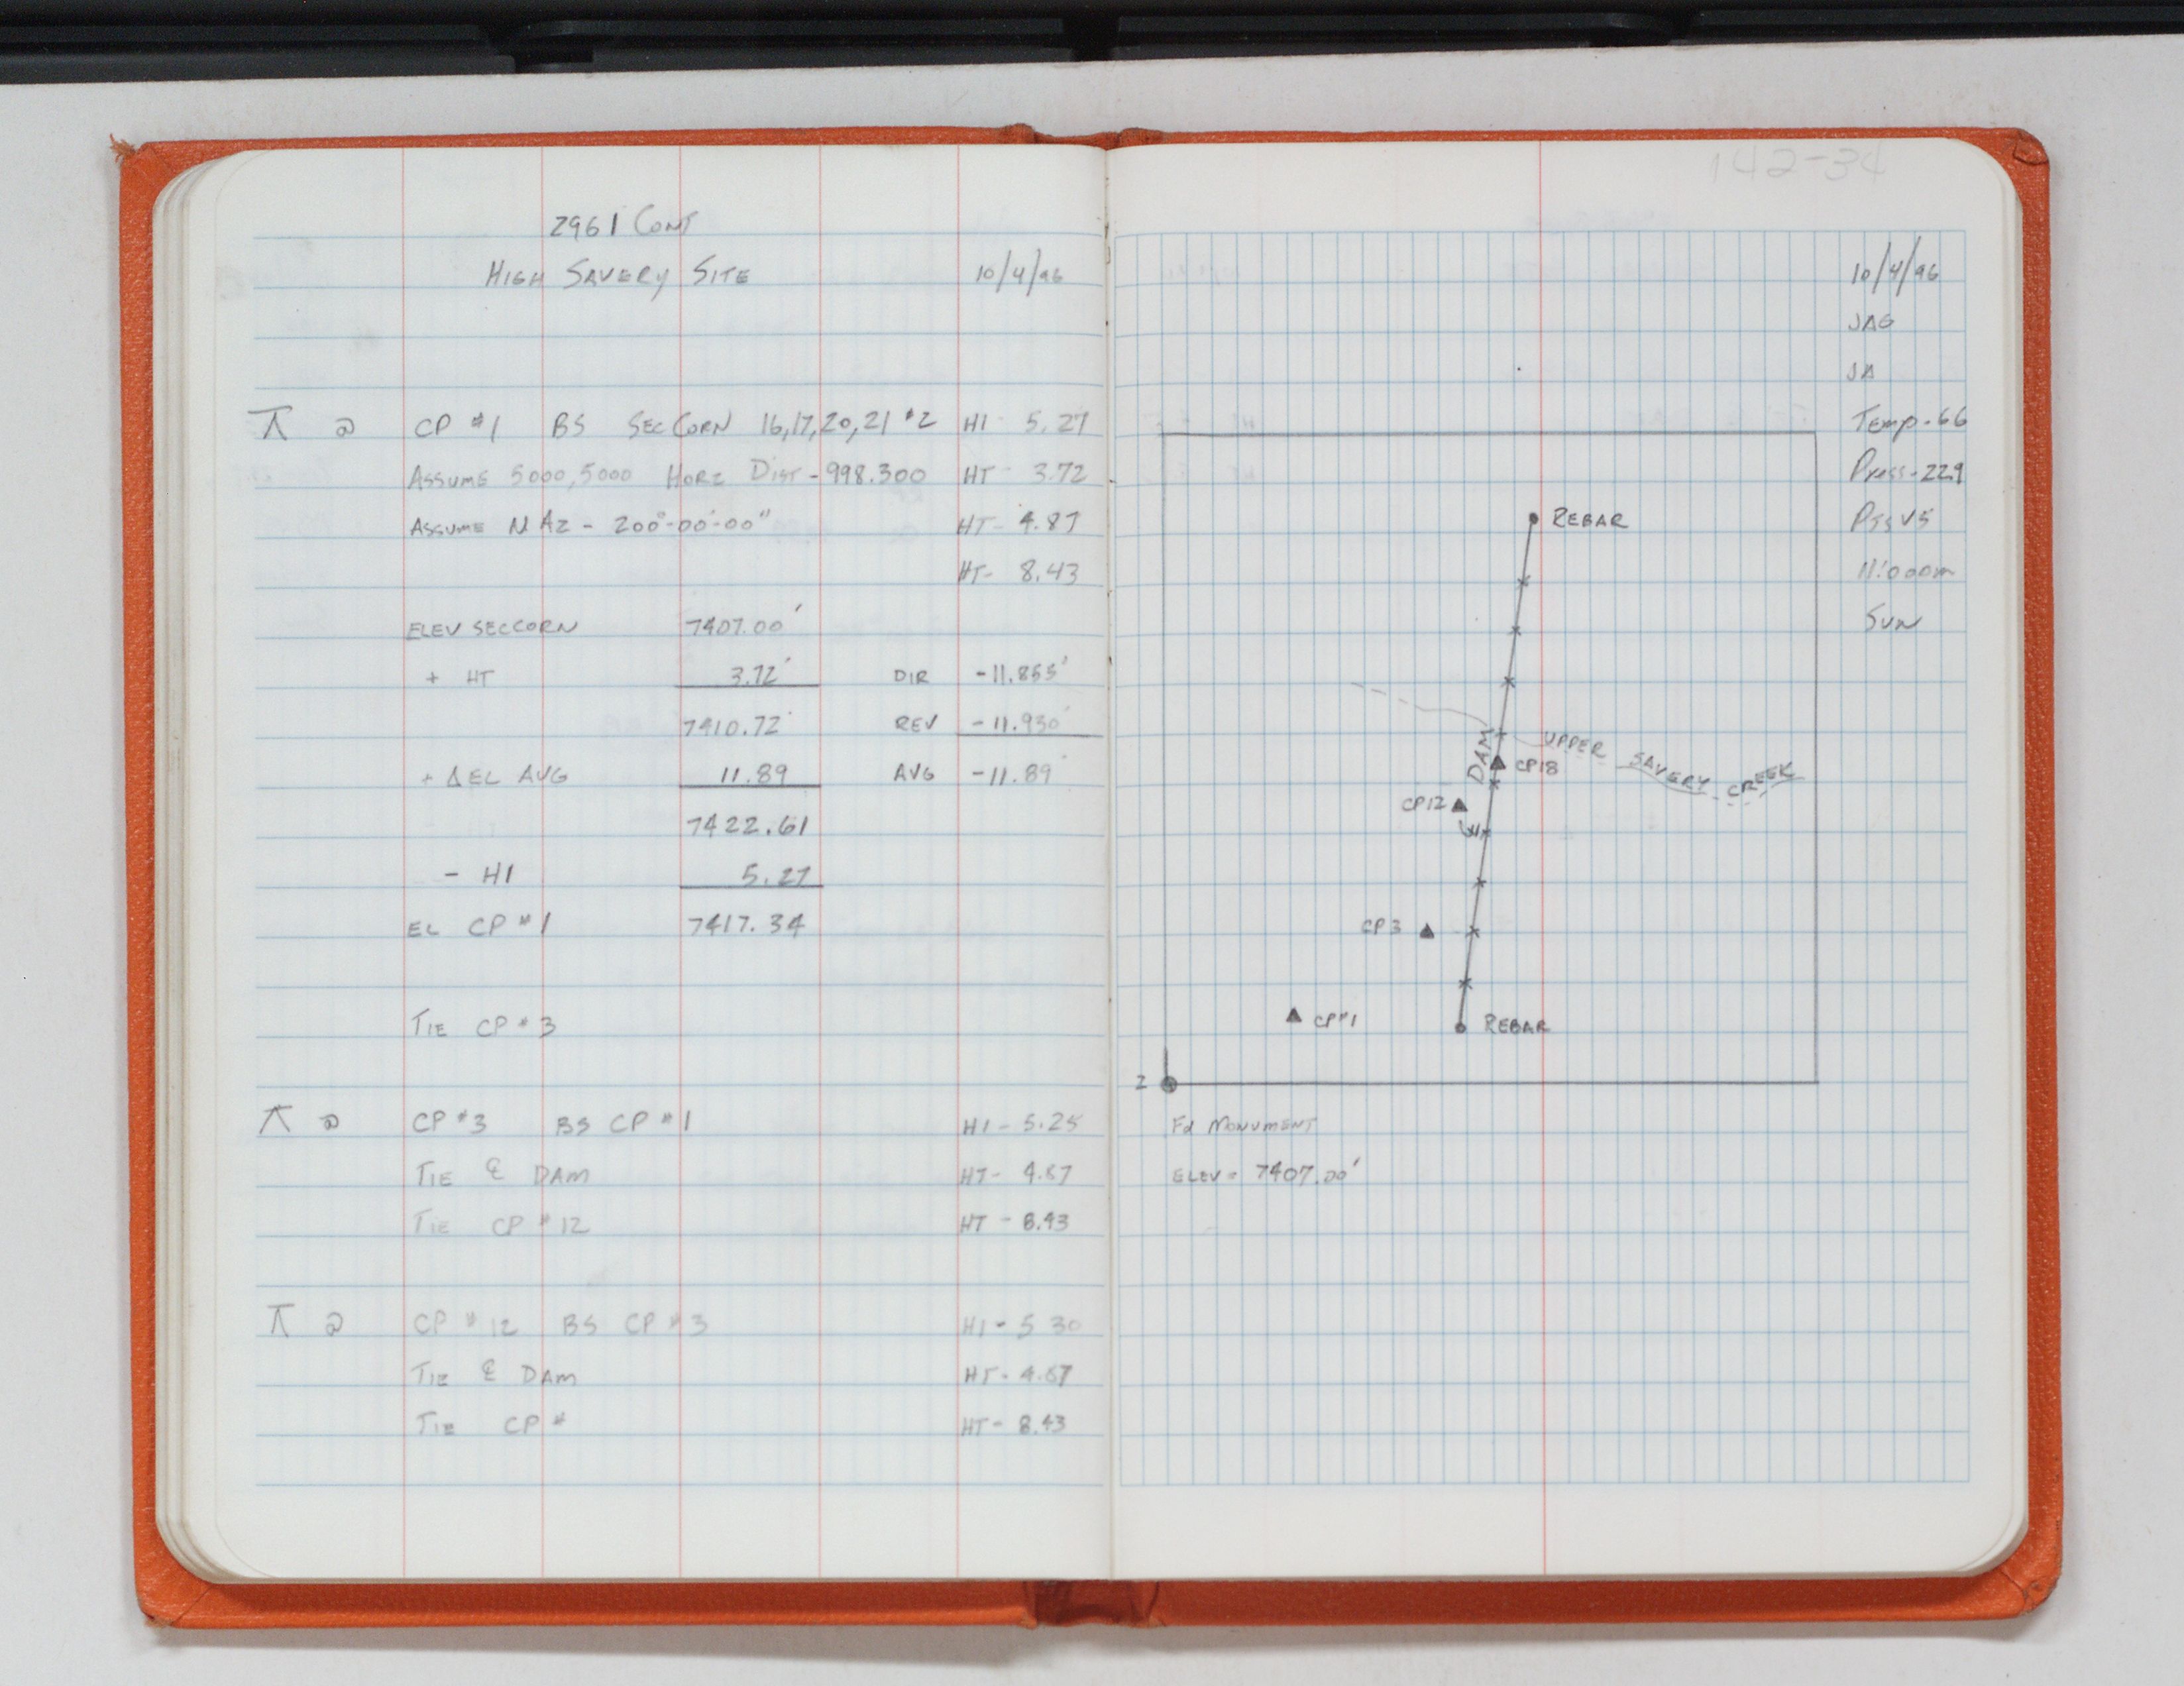 2961 CONT
HIGH SAVERY SITE 10/4/96
⊼ @ CP #1 BS SEC CORN 16,17,20,21 #2 HI - 5.27
ASSUME 5000,5000 HORZ DIST - 998.300 HT - 3.72
ASSUME N AZ - 200°-00'-00" HT - 4.87
HT - 8.43
ELEV SEC CORN 7407.00'
+ HT 3.72' DIR -11.855'
7410.72' REV -11.930'
+ ΔEL AVG 11.89 AVG -11.89'
7422.61
- HI 5.27
EL CP #1 7417.34
TIE CP #3
⊼ @ CP #3 BS CP #1 HI - 5.25
TIE ℄ DAM HT - 4.87
TIE CP #12 HT - 8.43
⊼ @ CP #12 BS CP #3 HI - 5 30
TIE ℄ DAM HT - 4.87
TIE CP # HT - 8.43
142-34
10/4/96
JAG
JA
TEMP - 66
PRESS - 22.9
11:00am
SUN
REBAR
UPPER SAVERY CREEK
℄ DAM
CP18
CP12
CP3
CP#1
REBAR
2
Fd MONUMENT
ELEV = 7407.00'